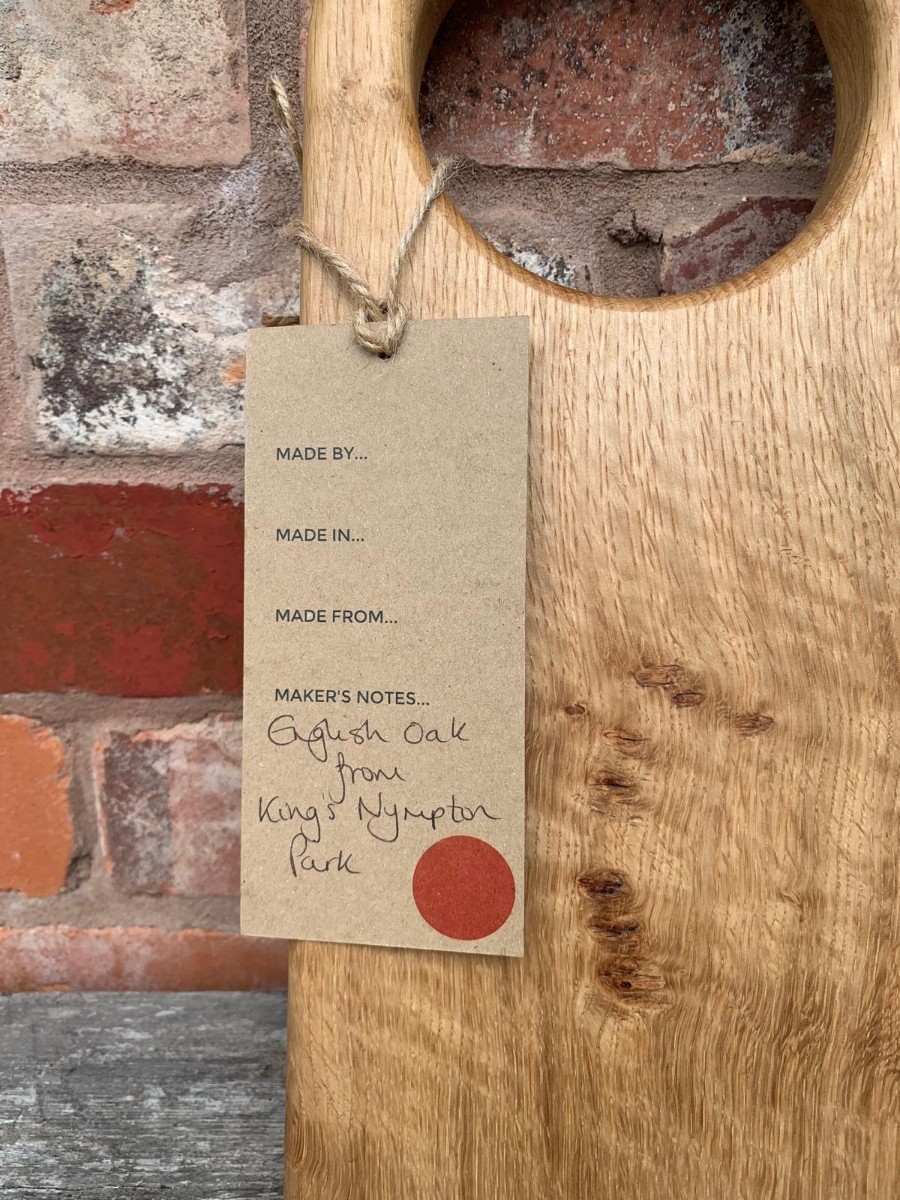 MADE BY...
MADE IN...
MADE FROM...
MAKER'S NOTES...
English Oak
from
King's Nympton
Park